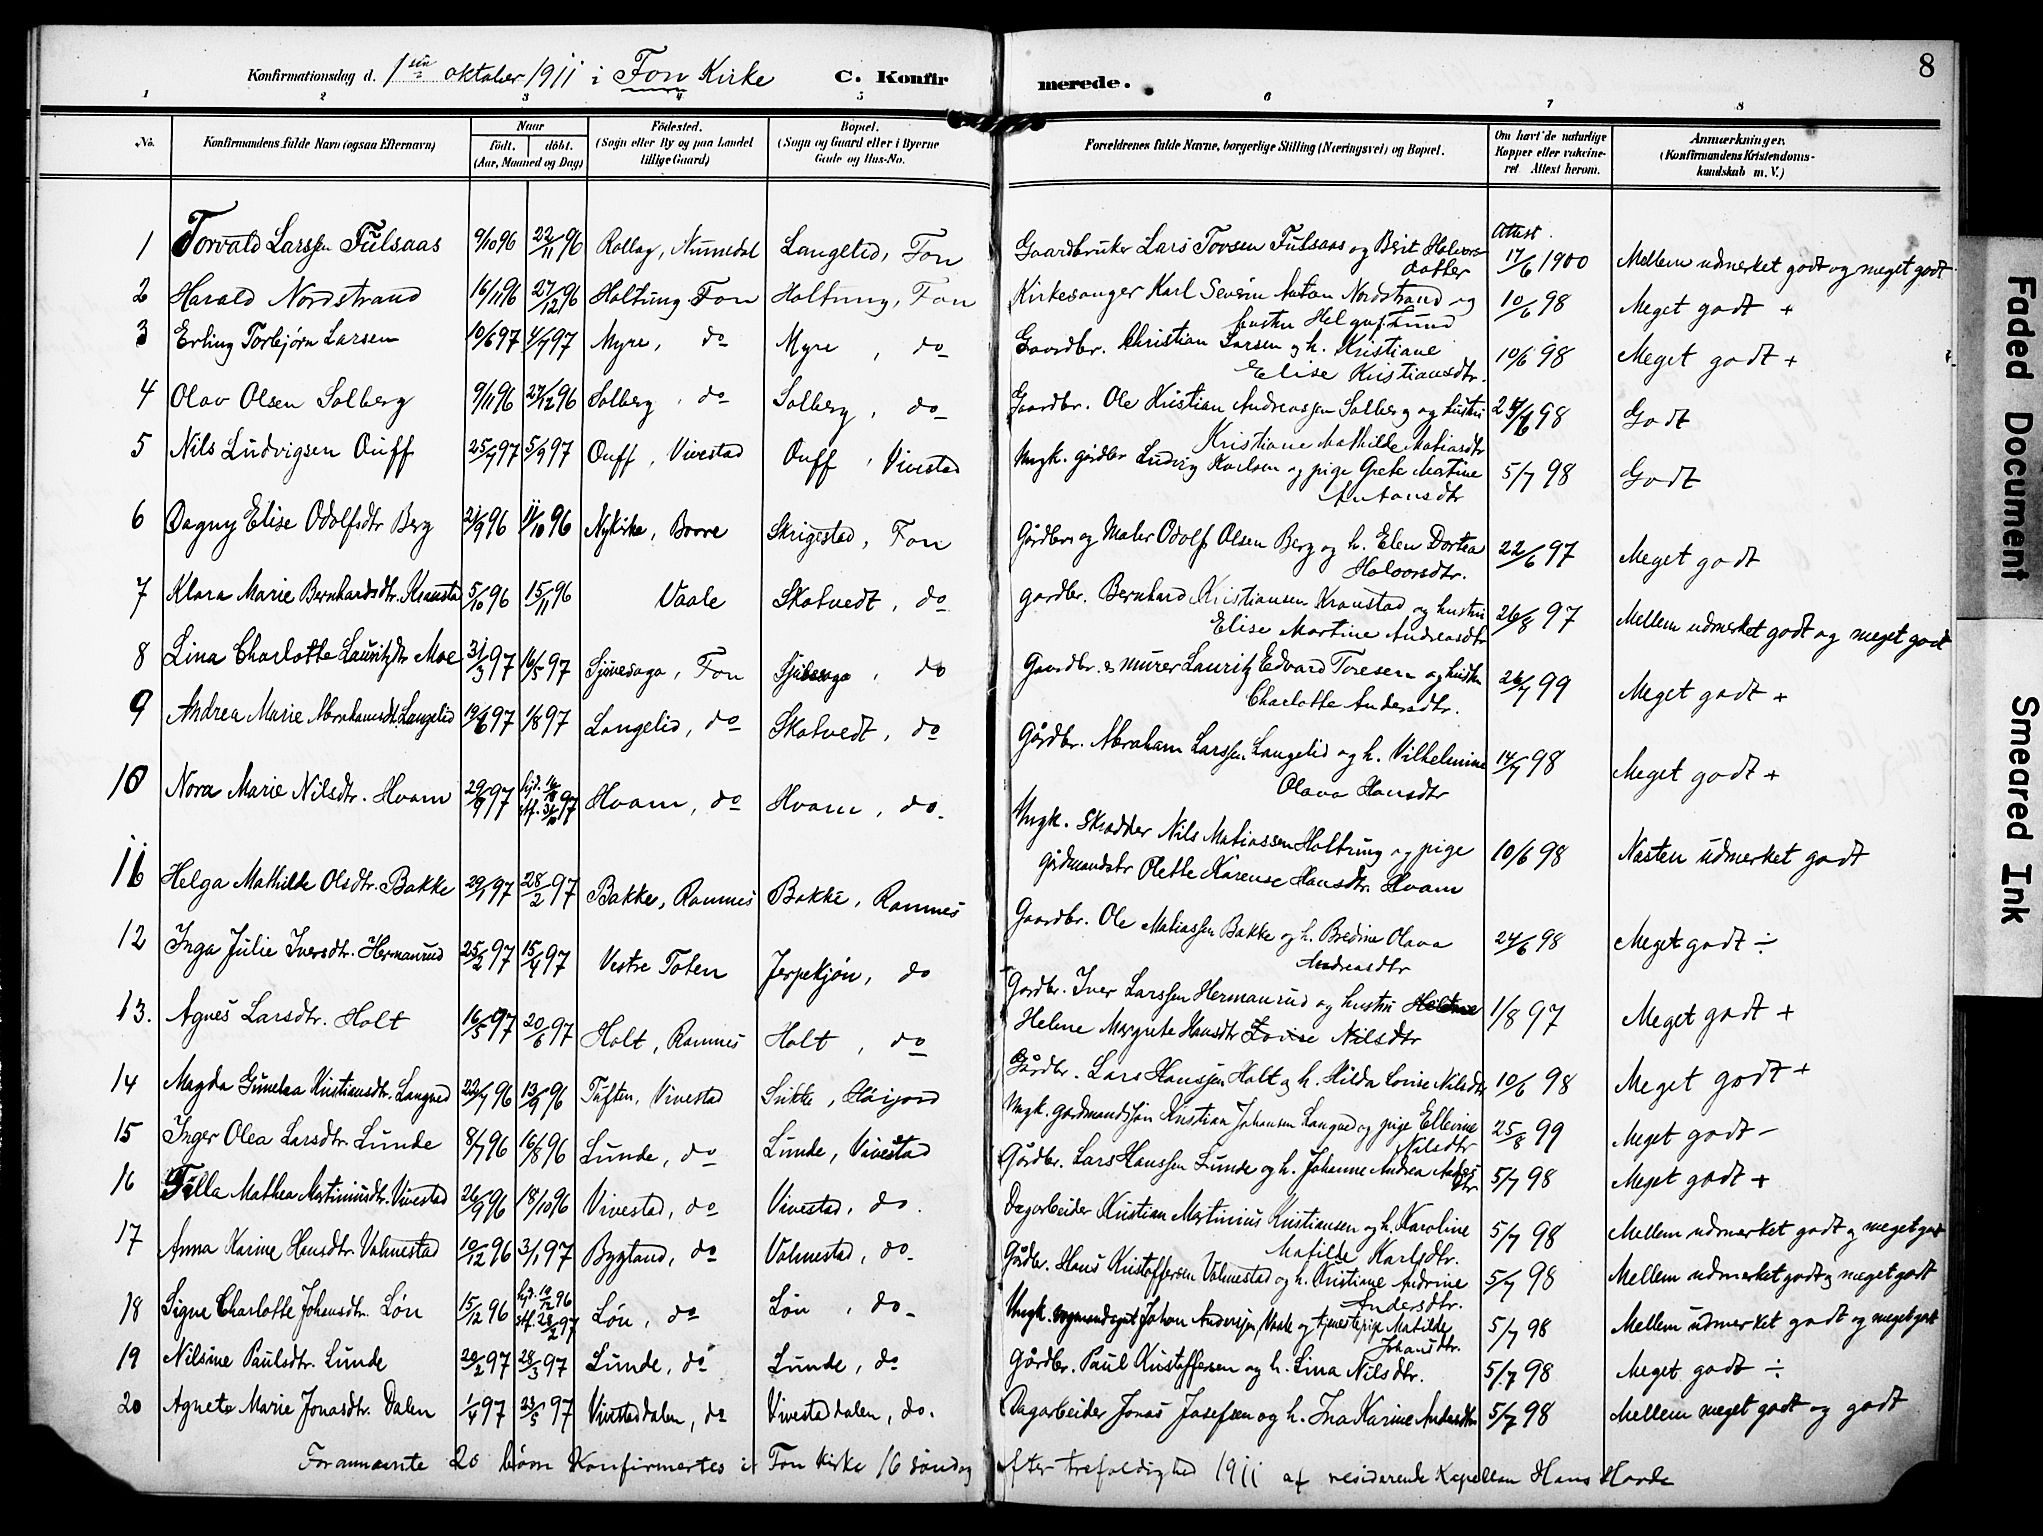 Konfirmationsdag d. 1ste oktober 1911 i Fon Kirke C. Konfirmerede. 8
1 2 3 4 5 6 7 8
No. Konfirmandens fulde Navn (ogsaa Efternavn) Naar født. døbt. (Aar, Maaned og Dag) Födested. (Sogn eller By og paa Landet tillige Gaard) Bopæl. (Sogn og Gaard eller i Byerne Gade og Hus-No. Forældrenes fulde Navne, borgerlige Stilling (Næringsvei) og Bopæl. Om havt de naturlige Kopper eller vakcineret Attest herom. Anmærkninger. (Konfirmandens Kristendomskundskab m. V.)
1 Torvald Larssen Fulsaas 9/10 96 22/11 96 Rollag, Numedal Langelid, Fon Gaardbruker Lars Tovsen Fulsaas og Berit Halvorsdatter Attest. 17/6 1900 Mellem udmerket godt og meget godt
2 Harald Nordstrand 16/11 96 27/12 96 Holtung Fon Holtung, Fon Kirkesanger Karl Severin Anton Nordstrand og hustru Helga Lund 10/6 98 Meget godt +
3 Erling Torbjørn Larsen 10/6 97 4/7 97 Myre, do Myre, do Gaardbr. Christian Larsen og h. Kristiane Elise Kristiansdtr. 10/6 98 Meget godt +
4 Olav Olsen Solberg 9/11 96 27/12 96 Solberg, do Solberg, do Gaardbr. Ole Kristian Andreassen Solberg og hustru Kristiane Mathilde Matiasdtr 98 Godt
5 Nils Ludvigsen Ouff 25/7 97 5/9 97 Ouff, Vivestad Ouff, Vivestad Ungk. gårdbr Ludvig Karlsen og pige Grete Martine Antonsdtr 5/7 98 Godt
6 Dagny Elise Odolfsdtr Berg 21/9 96 11/10 96 Nykirke, Borre Skrigestad, Fon Gårdbr. og Maler Odolf Olsen Berg og h. Elen Dortea Halvorsdtr. 22/6 97 Meget godt
7 Klara Marie Bernhardsdtr. Kraustad 5/10 96 15/11 96 Vaale Skatvedt, do gardbr. Bernhard Kristiansen Kraustad og hustru Elise Martine Andreasdtr 26/8 97 Mellem udmerket godt og meget godt
8 Lina Charlotte Lauritzdtr Moe 31/3 97 16/5 97 Sjuesaga, Fon do Gaardbr. & murer Lauritz Edvard Toresen og hustru Charlotte Andersdtr. 26/7 99 Meget godt +
9 Andrea Marie Abrahamsdt. Langelid 19/6 97 1/8 97 Langelid, do Skatvedt, do Gårdbr. Abraham Larssen Langelid og h. Vilhelmine Olava Hansdtr 14/7 98 Meget godt +
10 Nora Marie Nilsdtr. Hvam 29/9 97 hjd. stf. 31/10 97 Hvam, do Hvam, do. Ungk. Skrædder Nils Matiassen Holtung og pige gårdmandsdtr Olette Karense Hansdtr. Hvam 10/6 98 Næsten udmerket godt
11 Helga Mathilde Olsdtr. Bakke 29/1 97 28/2 97 Bakke, Ramnes Bakke, Ramnes Gaardbr. Ole Matiassen Bakke og h. Bredine Olava Andreasdtr 24/6 98 Meget godt ÷
12 Inga Julie Iversdtr. Hermanrud 25/2 97 15/4 97 Vestre Toten Jerpekjøn, do Gardbr. Iver Larssen Hermanrud og hustru Helene Margrete Hansdtr Lovise Nilsdtr 1/8 97 Meget godt +
13. Agnes Larsdtr. Holt 16/5 97 20/6 97 Holt, Ramnes Holt, do Gårdbr. Lars Hanssen Holt og h. Hilda Lovise Nilsdtr 10/6 98 Meget godt +
14 Magda Gunelaa Kristiansdtr. Langved 22/7 96 13/9 96 Tuften, Vivestad Sukke, Høijord Ungk. gardmandssøn Kristian Johansen Langved og pige Ellevine Nilsdtr 25/8 99 Meget godt -
15 Inger Olea Larsdtr. Lunde 8/7 96 16/8 96 Lunde, do Lunde, Vivestad Gårdbr. Lars Hanssen Lunde og h. Johanne Andrea 5/7 98 Meget godt +
16 Tilla Mathea Martiniusdtr. Vivestad 26/9 96 18/10 96 Vivestad, do Vivestad, do. Dagarbeider Kristian Martinius Kristiansen og h. Karoline Matilde Karlsdtr. 5/7 98 Mellem udmerket godt og meget godt
17 Anna Karine Hansdtr Valmestad 10/12 96 3/1 97 Bygtand, do Valmestad, do. Gårdbr. Hans Kristoffersen Valmestad og h. Kristiane Andrine Andersdtr. 5/7 98 Mellem udmerket godt og meget godt
18 Signe Charlotte Johansdtr. Løn 15/12 96 hjd. 19/12 96 stf. 28/2 97 Løn, do Løn, do. Ungk. Johan Anderssen, og tjenestepige Matilde Johansdtr. 5/7 98 Mellem udmerket godt og meget godt
19 Nilsine Paulsdtr. Lunde 20/2 97 28/3 97 Lunde, do Lunde, do Gårdbr. Paul Kristoffersen og h. Lina Nilsdtr. 5/7 98 Meget godt ÷
20 Agnete Marie Jonasdtr. Dalen 1/4 97 23/5 97 Vivestaddalen, do Vivestaddalen, do. Dagarbeider Jonas Josefsen og h. Ina Karine Andersdtr 5/7 98 Mellem meget godt og godt
Forannævnte 20 børn Konfirmertes i Fon kirke 16 søndag efter trefoldighed 1911 af residerende Kapellan Hans
Faded Document
Smeared Ink